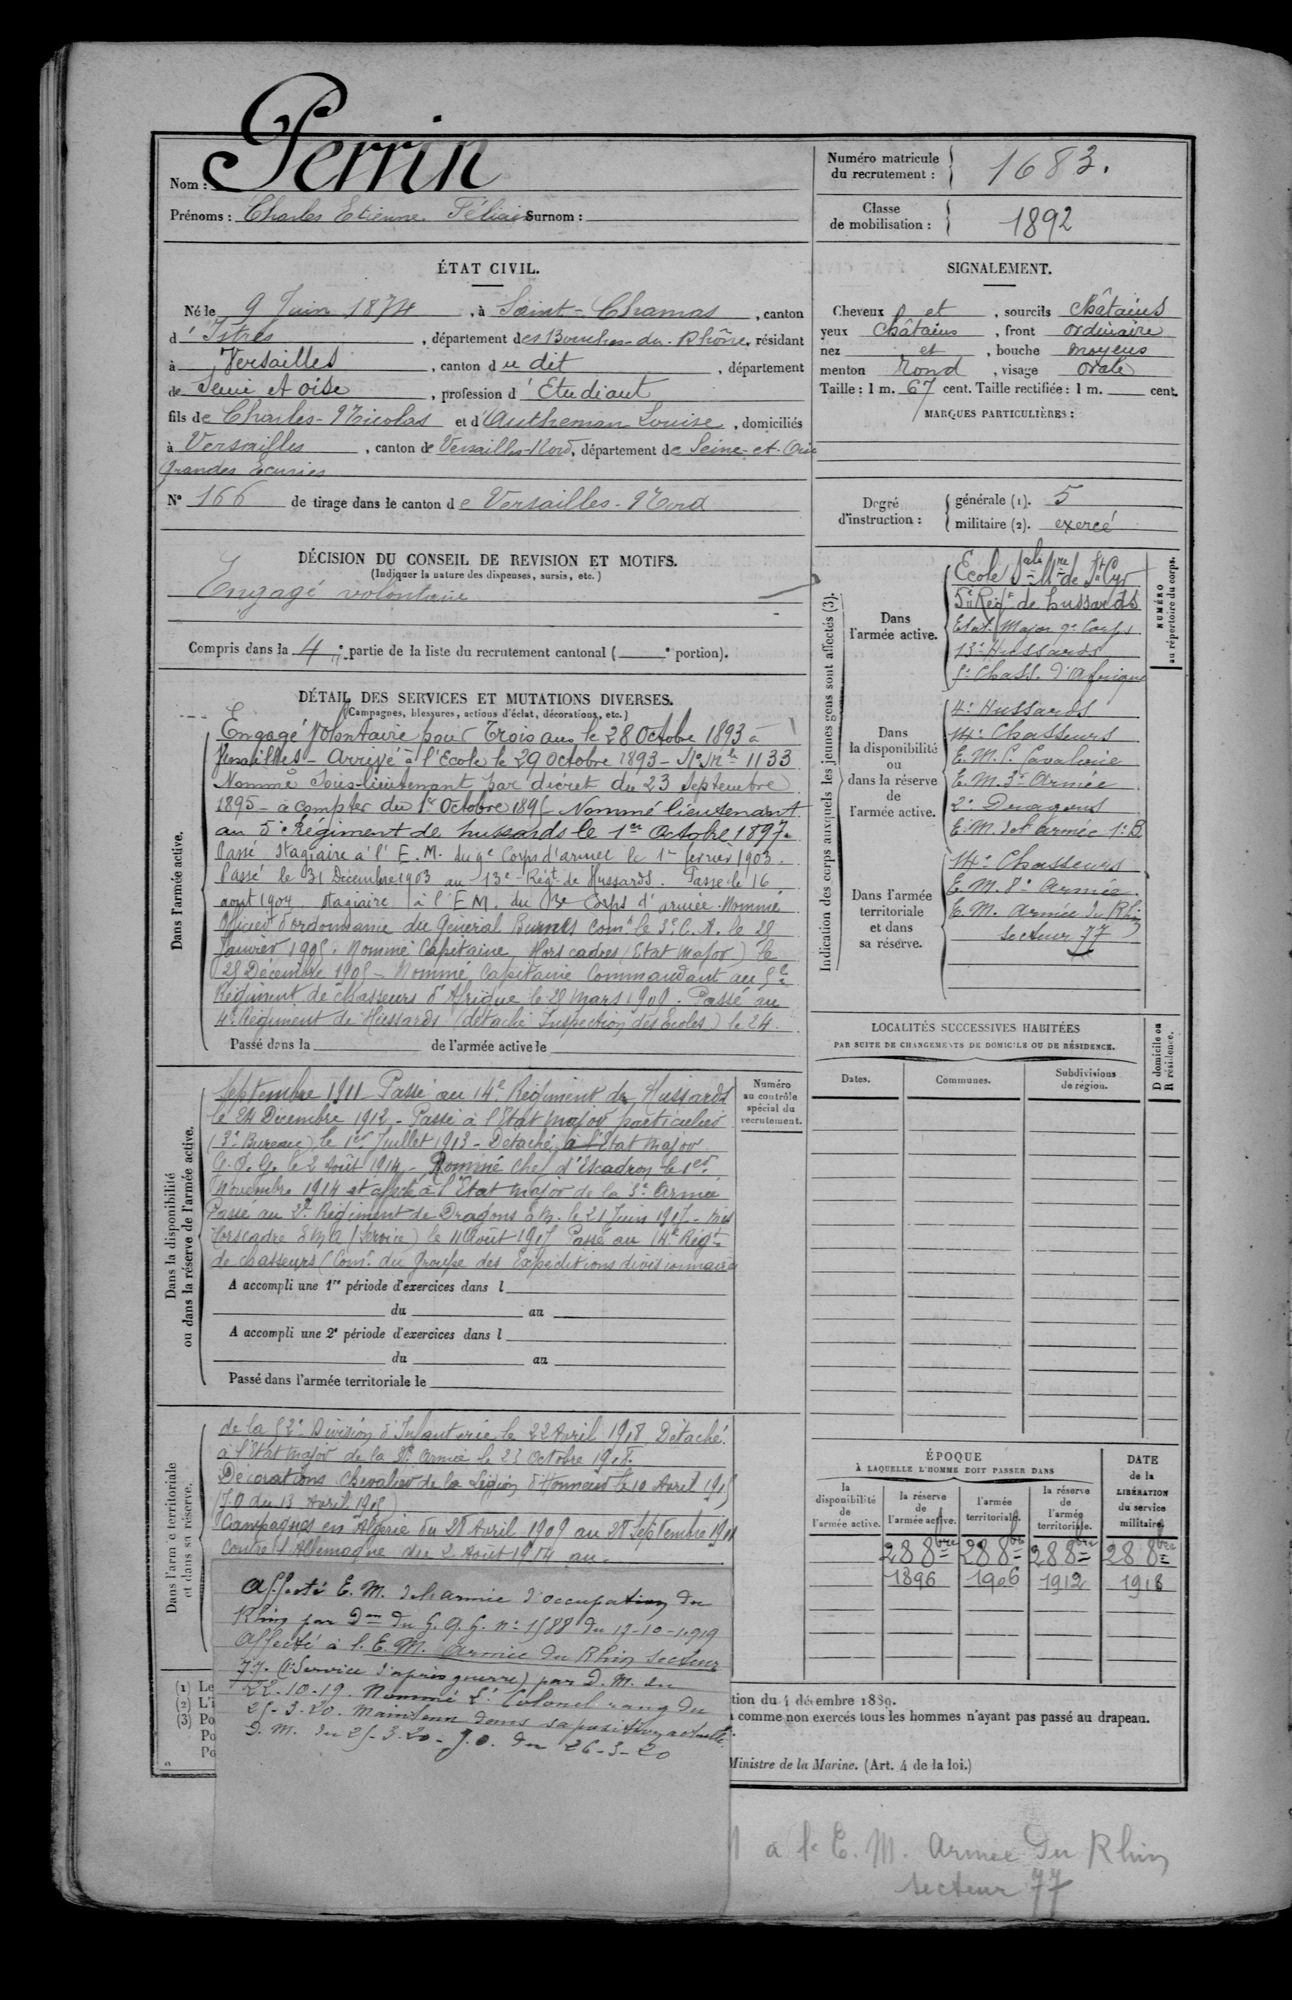 Nom : Perrin
Prénoms : Charles Etienne Félicien Surnom :
Numéro matricule du recrutement : 1683.
Classe de mobilisation : 1892
ÉTAT CIVIL.
Né le 9 Juin 1874, à Saint-Chamas, canton
d'Istres, département des Bouches-du-Rhône, résidant
à Versailles, canton du dit, département
de Seine et Oise, profession d'Etudiant
fils de Charles-Nicolas et d'Autheman Louise, domiciliés
à Versailles, canton de Versailles-Nord, département de Seine-et-Oise
Grandes Ecuries
N° 166 de tirage dans le canton de Versailles-Nord
SIGNALEMENT.
Cheveux et, sourcils châtains
yeux châtains, front ordinaire
nez et, bouche moyens
menton rond, visage ovale
Taille : 1 m. 67 cent. Taille rectifiée : 1 m. cent.
MARQUES PARTICULIÈRES :
Degré d'instruction : générale (1). 5
militaire (2). exercé
DÉCISION DU CONSEIL DE REVISION ET MOTIFS.
(Indiquer la nature des dispenses, sursis, etc.)
Engagé volontaire
Compris dans la 4e partie de la liste du recrutement cantonal ( e portion).
DÉTAIL DES SERVICES ET MUTATIONS DIVERSES.
(Campagnes, blessures, actions d'éclat, décorations, etc.)
Dans l'armée active.
Engagé volontaire pour Trois ans le 28 Octobre 1893 à
Versailles - Arrivé à l'Ecole le 29 Octobre 1893 - No Mle 1133
Nommé Sous-lieutenant par décret du 23 Septembre
1895 - à compter du 1er Octobre 1895 Nommé lieutenant
au 5e Régiment de hussards le 1er Octobre 1897.
Passé stagiaire à l'E.M. du 9e Corps d'armée le 1er février 1903.
Passé le 31 Décembre 1903 au 13e Régt de Hussards. Passé le 16
août 1904 stagiaire à l'E.M. du 3e Corps d'armée. Nommé
Officier d'ordonnance du Général Burnez Comt le 3e C.A. le 28
Janvier 1905. Nommé Capitaine Hors cadres (Etat Major) le
25 Décembre 1905 - Nommé Capitaine Commandant au 5e
Régiment de chasseurs d'Afrique le 28 Mars 1909. Passé au
4e Régiment de Hussards (détaché Inspection des Ecoles) le 24
Passé dans la de l'armée active le
Dans la disponibilité ou dans la réserve de l'armée active.
Septembre 1911 Passé au 14e Régiment de Hussards
le 24 Décembre 1912 - Passé à l'Etat Major particulier
(3e Bureau) le 1er Juillet 1913 - Détaché à l'Etat Major
G.Q.G. le 2 Août 1914 - Nommé Chef d'Escadron le 1er
Novembre 1914 et affecté à l'Etat Major de la 3e Armée
Passé au 2e Régiment de Dragons le 21 Juin 1917 - Mis
Hors cadre (Service) le 11 Août 1917 Passé au 14e Régt
de chasseurs (Comt du Groupe des Expéditions divisionnaires
A accompli une 1re période d'exercices dans l
du au
A accompli une 2e période d'exercices dans l
du au
Passé dans l'armée territoriale le
Numéro au contrôle spécial du recrutement.
Dans l'armée territoriale et dans sa réserve.
de la 52e Division d'Infanterie le 22 Avril 1918 Détaché
à l'Etat Major de la 8e Armée le 23 Octobre 1918.
Décorations Chevalier de la Légion d'Honneur le 10 Avril 1915
(J.O du 13 Avril 1915)
Campagnes en Algérie du 28 Avril 1909 au 28 Septembre 1911
Contre l'Allemagne du 2 Août 1914 au
Affecté E.M. de l'armée d'occupation du
Rhin par Don du G.Q.G. n° 1588 du 12-10-1919
Affecté à l'E.M. Armée du Rhin secteur
77. (Service d'après guerre) par D.M. du
22-10-19. Nommé Lt Colonel rang du
25-3-20. Maintenu dans sa position actuelle.
D.M. du 25-3-20 - J.O. du 26-3-20
Indication des corps auxquels les jeunes gens sont affectés (3).
NUMÉRO au répertoire du corps.
Dans l'armée active.
Ecole Sale Mre de St Cyr
5e Régt de hussards
Etat-Major 9e Corps
13e Hussards
5e Chass. d'Afrique
Dans la disponibilité ou dans la réserve de l'armée active.
4e Hussards
14e Chasseurs
E.M.P. Cavalerie
E.M. 3e Armée
2e Dragons
E.M. de l'armée 1e B
Dans l'armée territoriale et dans sa réserve.
14e Chasseurs
E.M. 8e Armée
E.M. Armée du Rhin
secteur 77
LOCALITÉS SUCCESSIVES HABITÉES
PAR SUITE DE CHANGEMENTS DE DOMICILE OU DE RÉSIDENCE.
Dates. Communes. Subdivisions de région. D domicile ou R résidence.
ÉPOQUE
À LAQUELLE L'HOMME DOIT PASSER DANS
la disponibilité de l'armée active.
la réserve de l'armée active.
l'armée territoriale.
la réserve de l'armée territoriale.
DATE de la LIBÉRATION du service militaire.
28 8bre 28 8bre 28 8bre 28 8bre
1896 1906 1912 1918
(1) Le
(2) L'i
(3) Po
Po
Po
tion du 4 décembre 1889.
comme non exercés tous les hommes n'ayant pas passé au drapeau.
Ministre de la Marine. (Art. 4 de la loi.)
a l'E.M. Armée du Rhin
secteur 77